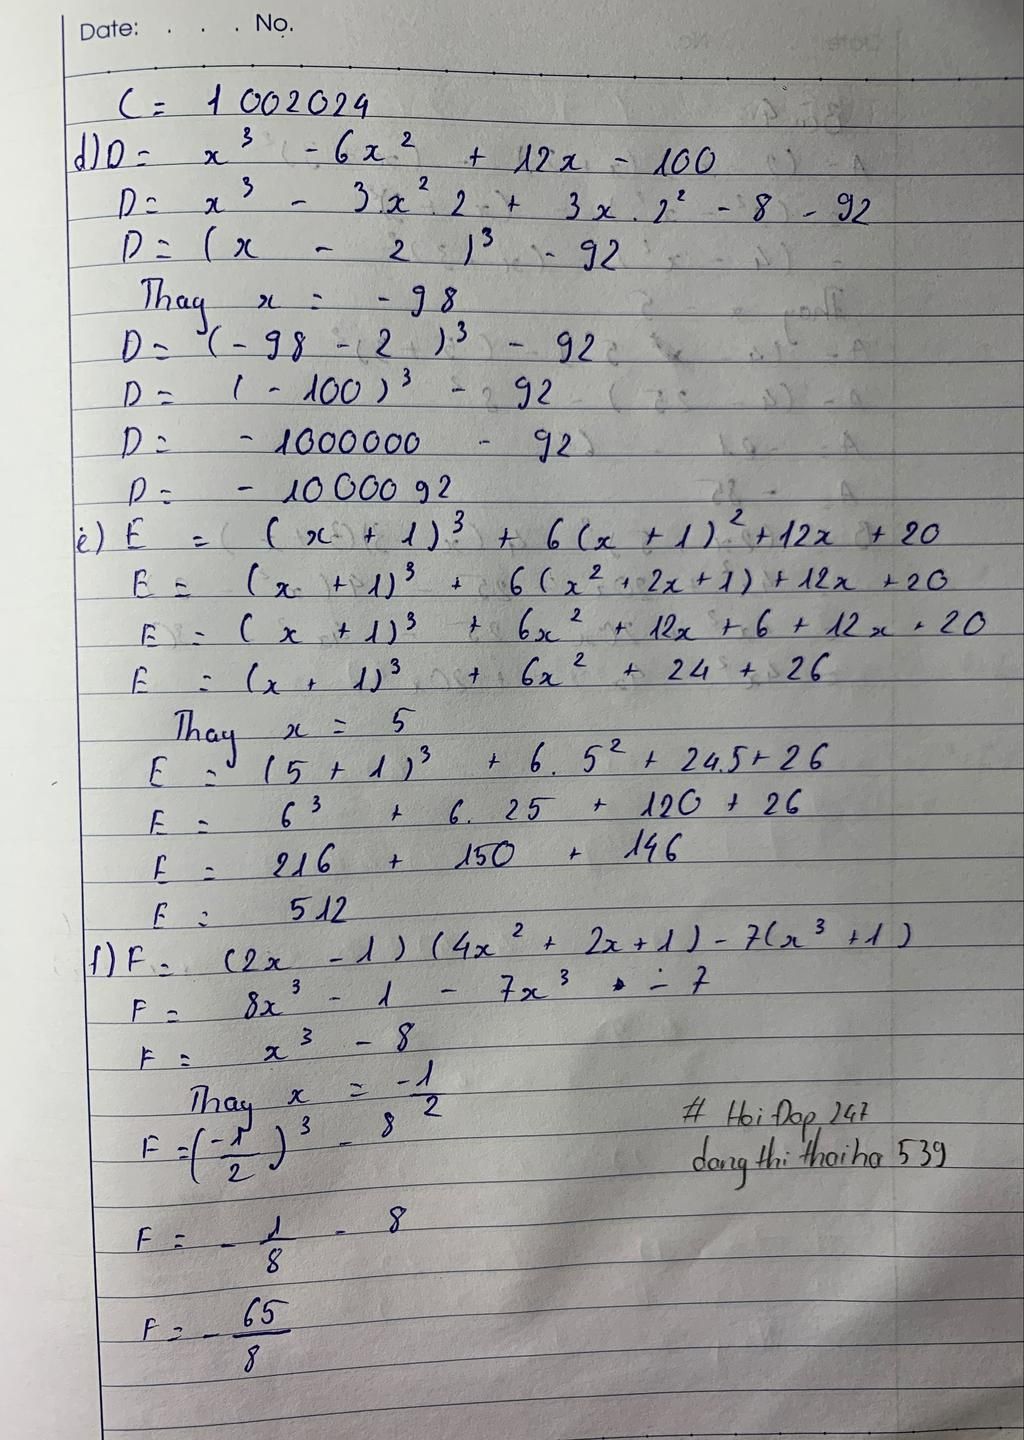 Date: . . . No.
C = 1 002024
d) D = x³ - 6x² + 12x - 100
D = x³ - 3.x².2 + 3x.2² - 8 - 92
D = (x - 2)³ - 92
Thay x = -98
D = (-98 - 2)³ - 92
D = (-100)³ - 92
D = -1000000 - 92
D = -1000092
e) E = (x + 1)³ + 6(x + 1)² + 12x + 20
E = (x + 1)³ + 6(x² + 2x + 1) + 12x + 20
E = (x + 1)³ + 6x² + 12x + 6 + 12x + 20
E = (x + 1)³ + 6x² + 24 + 26
Thay x = 5
E = (5 + 1)³ + 6.5² + 24.5 + 26
E = 6³ + 6.25 + 120 + 26
E = 216 + 150 + 146
E = 512
f) F = (2x - 1)(4x² + 2x + 1) - 7(x³ + 1)
F = 8x³ - 1 - 7x³ - 7
F = x³ - 8
Thay x = -1/2
F = (-1/2)³ - 8
# Hoi Dap 247
dang thi thaiha 539
F = -1/8 - 8
F = -65/8